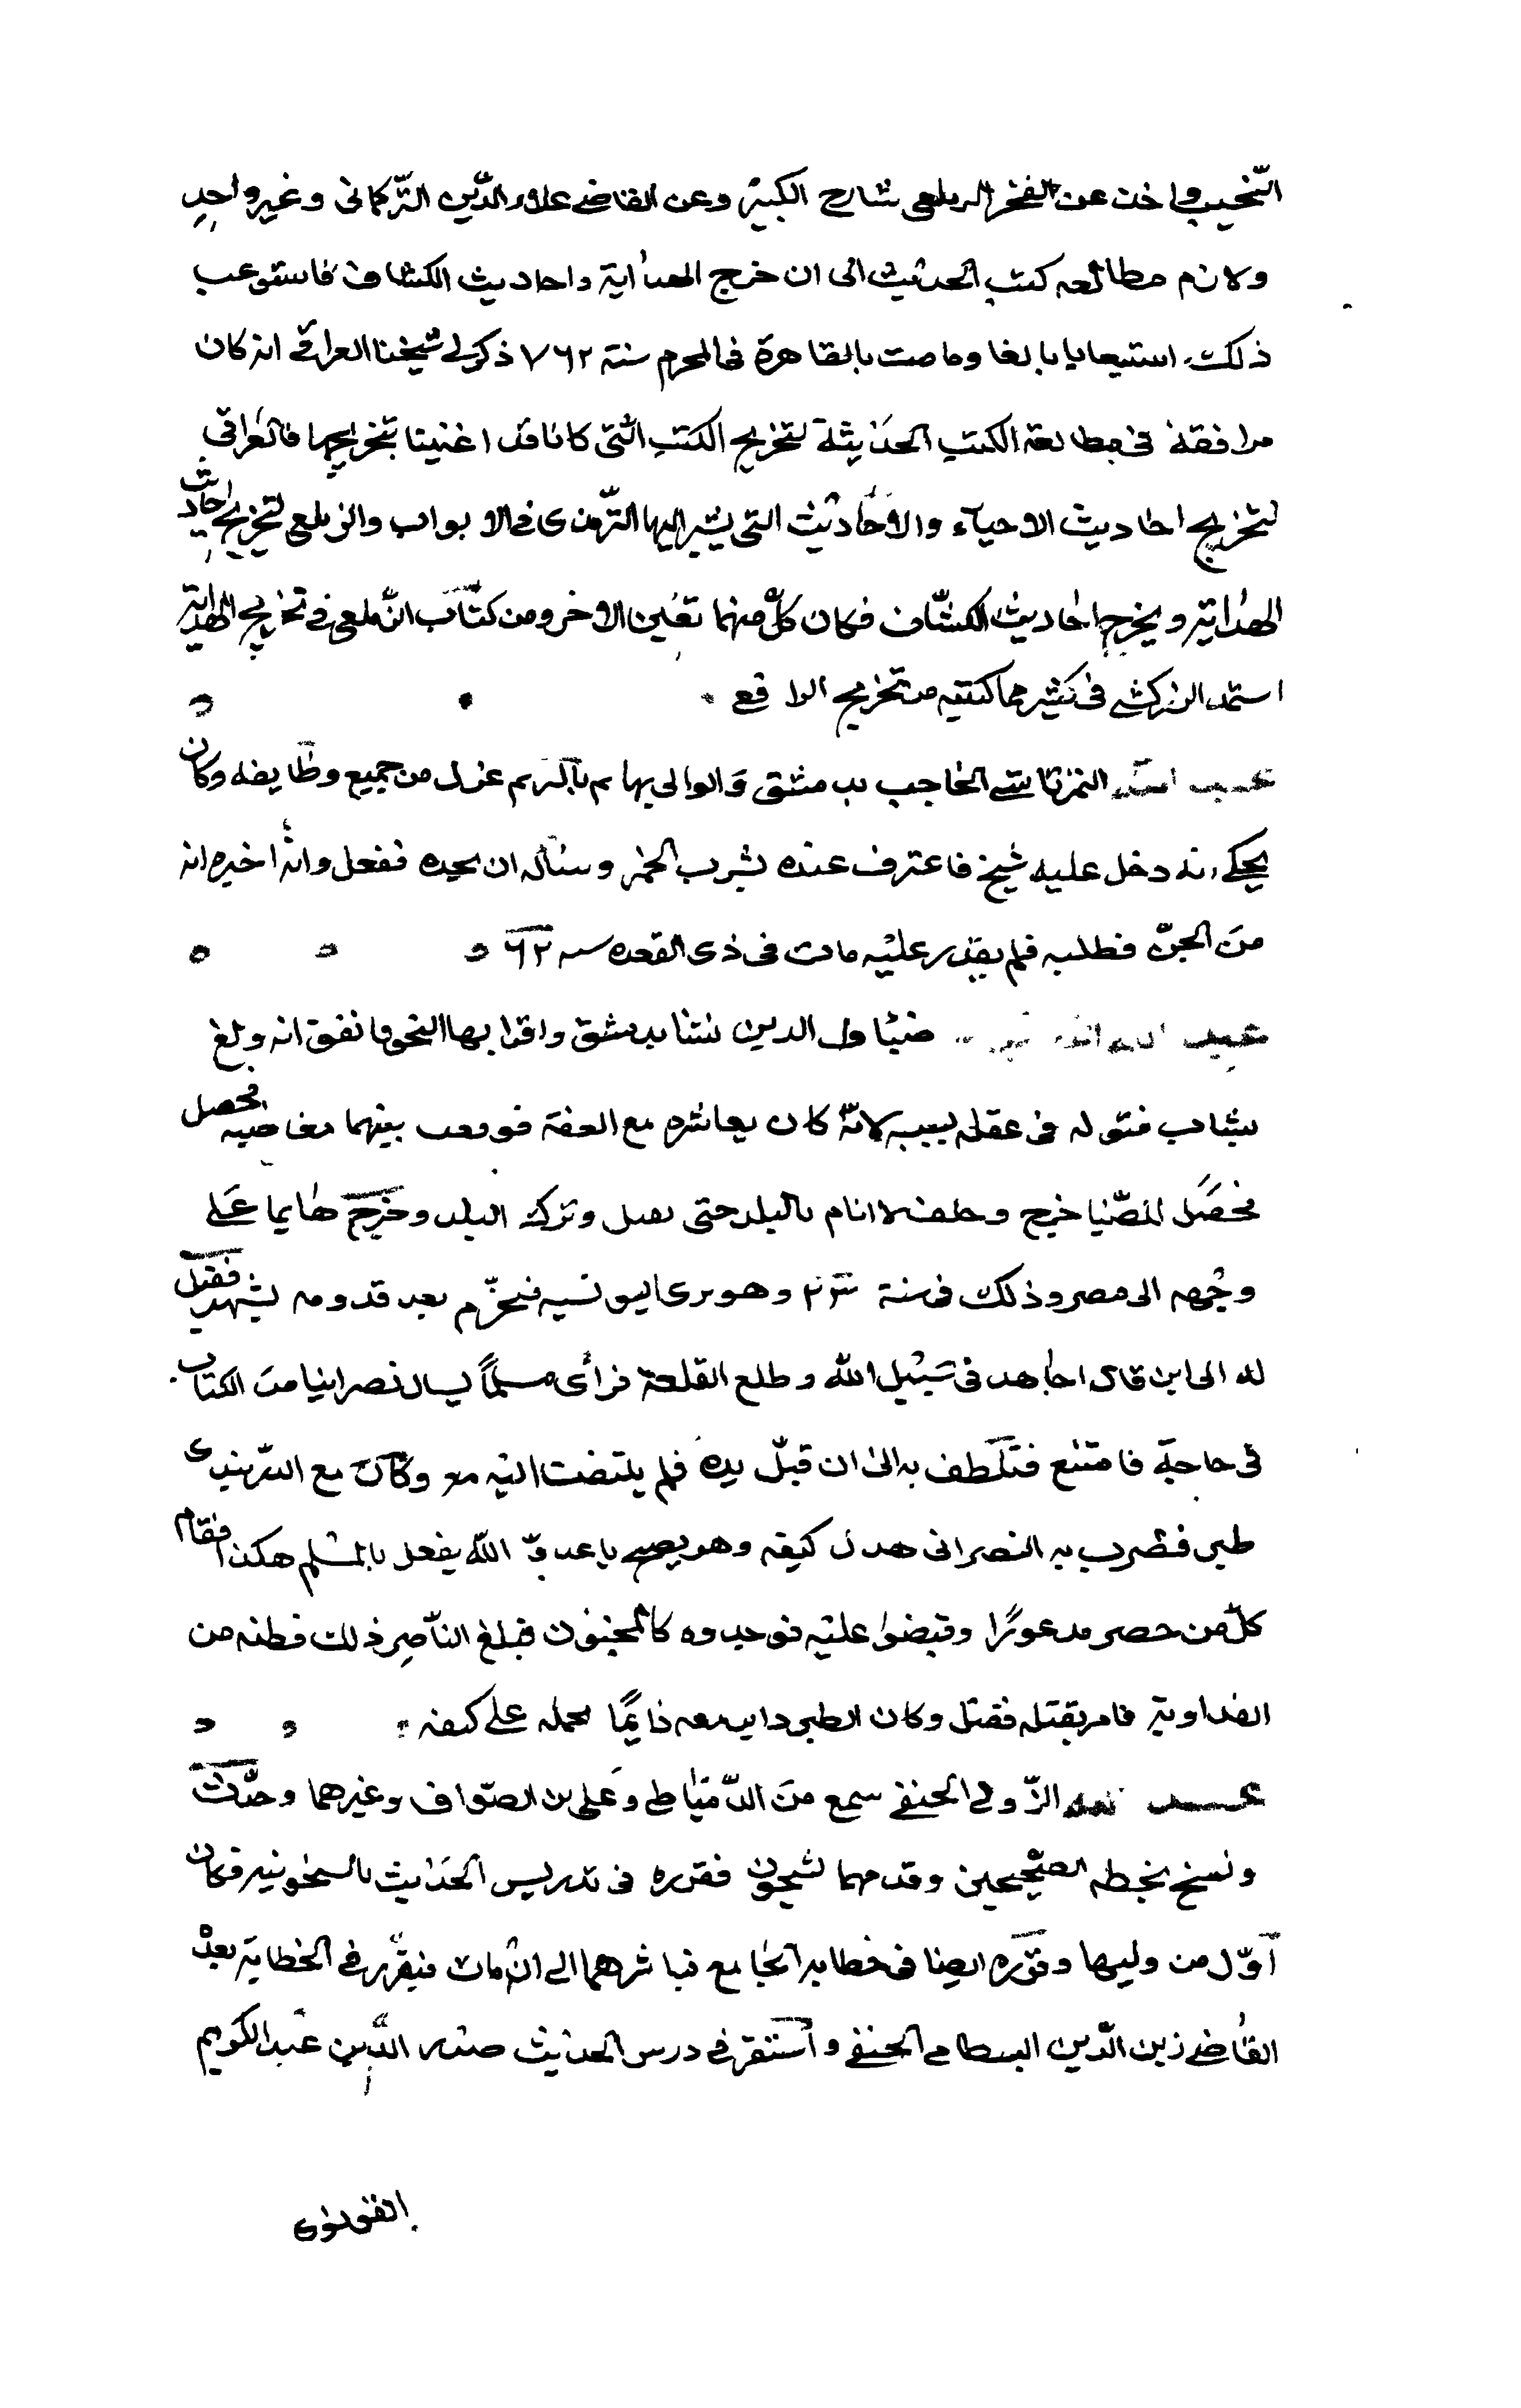 النجيب واخذ عن الفخر الزيلعي شارح الكبير وعن القاضي علاء الدّين التّركماني وغير واحدٍ
ولازم مطالعه كتب الحديث الى ان خرج الهداية واحاديث الكشاف فاستوعب
ذلك استيعابا بالغا ومات بالقاهرة في المحرم سنة ٧٦٢ ذكر لي شيخنا العراقي انه كان
مرافقه في مطالعة الكتب الحديثة لتخريج الكتب التي كانا قد اعتنيا بتخريجها فالعراقي
لتخريج احاديث الاحياء والاحاديث التي يشير اليها التّرمذي في الابواب والزيلعي لتخريج احاديث
الهداية ويخرج احاديث الكشّاف فكان كلّ منهما تعين الاخر ومن كتاب الزيلعي في تخريج الهداية
استمد الزركشي في كثير مما كتبه من تخريج الرافعي
عبد الله التمرتاشي الحاجب بدمشق والوالي بها عزل من جميع وظايفه وكان
يحكي انه دخل عليه شيخ فاعترف عنده بشرب الخمر وسئاله ان يحده ففعل وانه اخبره انه
من الجنّ فطلبه فلم يقدر عليه مات في ذي القعده سنه ٦٢
عبد الله ضيا الدين نشا بدمشق واقرا بها النحو فاتفق انه ولغ
بشاب فتوله في عقله بسببه لانّه كان يعاشره مع العفة فوقعت بينهما مغاضبه فحصل
فحصل للضّيا خرج بالبلد حتى وتركه البلد وخرج هايما على
وجهه الى مصر وذلك في سنة وهو بزي اليونسيه بعد قدومه فقيل
له الى اين قال اجاهد في سبيل الله وطلع القلعة فرأى مسلماً يسال نصرانيا من الكتاب
في حاجة فامتنع فتلطف به الى ان قبّل يده فلم يلتفت اليه وكان مع
طبر فضرب به النصراني هدل كتفه وهو يصيح يا عدو اللّه يفعل بالمسلم هكذا فقام
كلّ من حضر مدعورًا وقبضوا عليه فوجدوه كالمجنون فبلغ الناصر ذلك فظنه من
الفداوية فامر بقتله فقتل وكان الطبر دايما يحمله على كتفه
عبد الله الزّولي الحنفي سمع من الدّمياطي وعلي بن الصّواف وغيرهما وحدّث
ونسخ بخطه الصّحيحين وقدمهما لشيخون فقرره في تدريس الحديث بالشيخونيه فكان
اوّل من وليها وقرره ايضا في خطابه الجامع فباشرهما الى ان مات فيقرّر في الخطابة بعده
القاضي زين الدّين البسطامي الحنفي واستقر في درس الحديث صدر الدّين عبد الكريم
القونوي